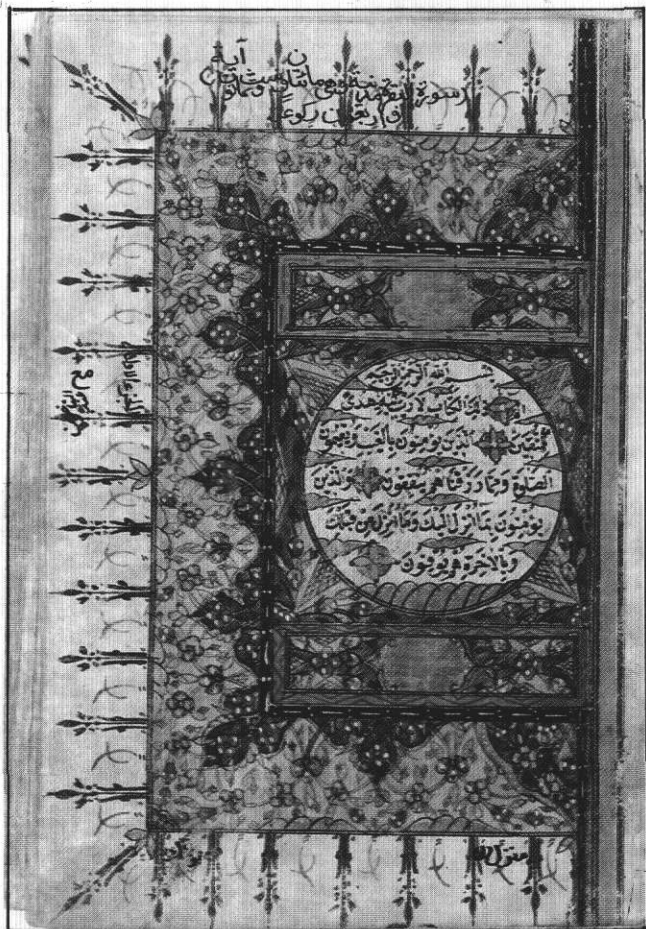 سورة البقرة مدنية وهي مائتان وست وثمانون آية
واربعون ركوعا
بسم الله الرحمن الرحيم
الم ذلك الكتاب لا ريب فيه هدى
للمتقين الذين يؤمنون بالغيب ويقيمون
الصلوة ومما رزقناهم ينفقون والذين
يؤمنون بما أنزل إليك وما أنزل من قبلك
وبالآخرة هم يوقنون